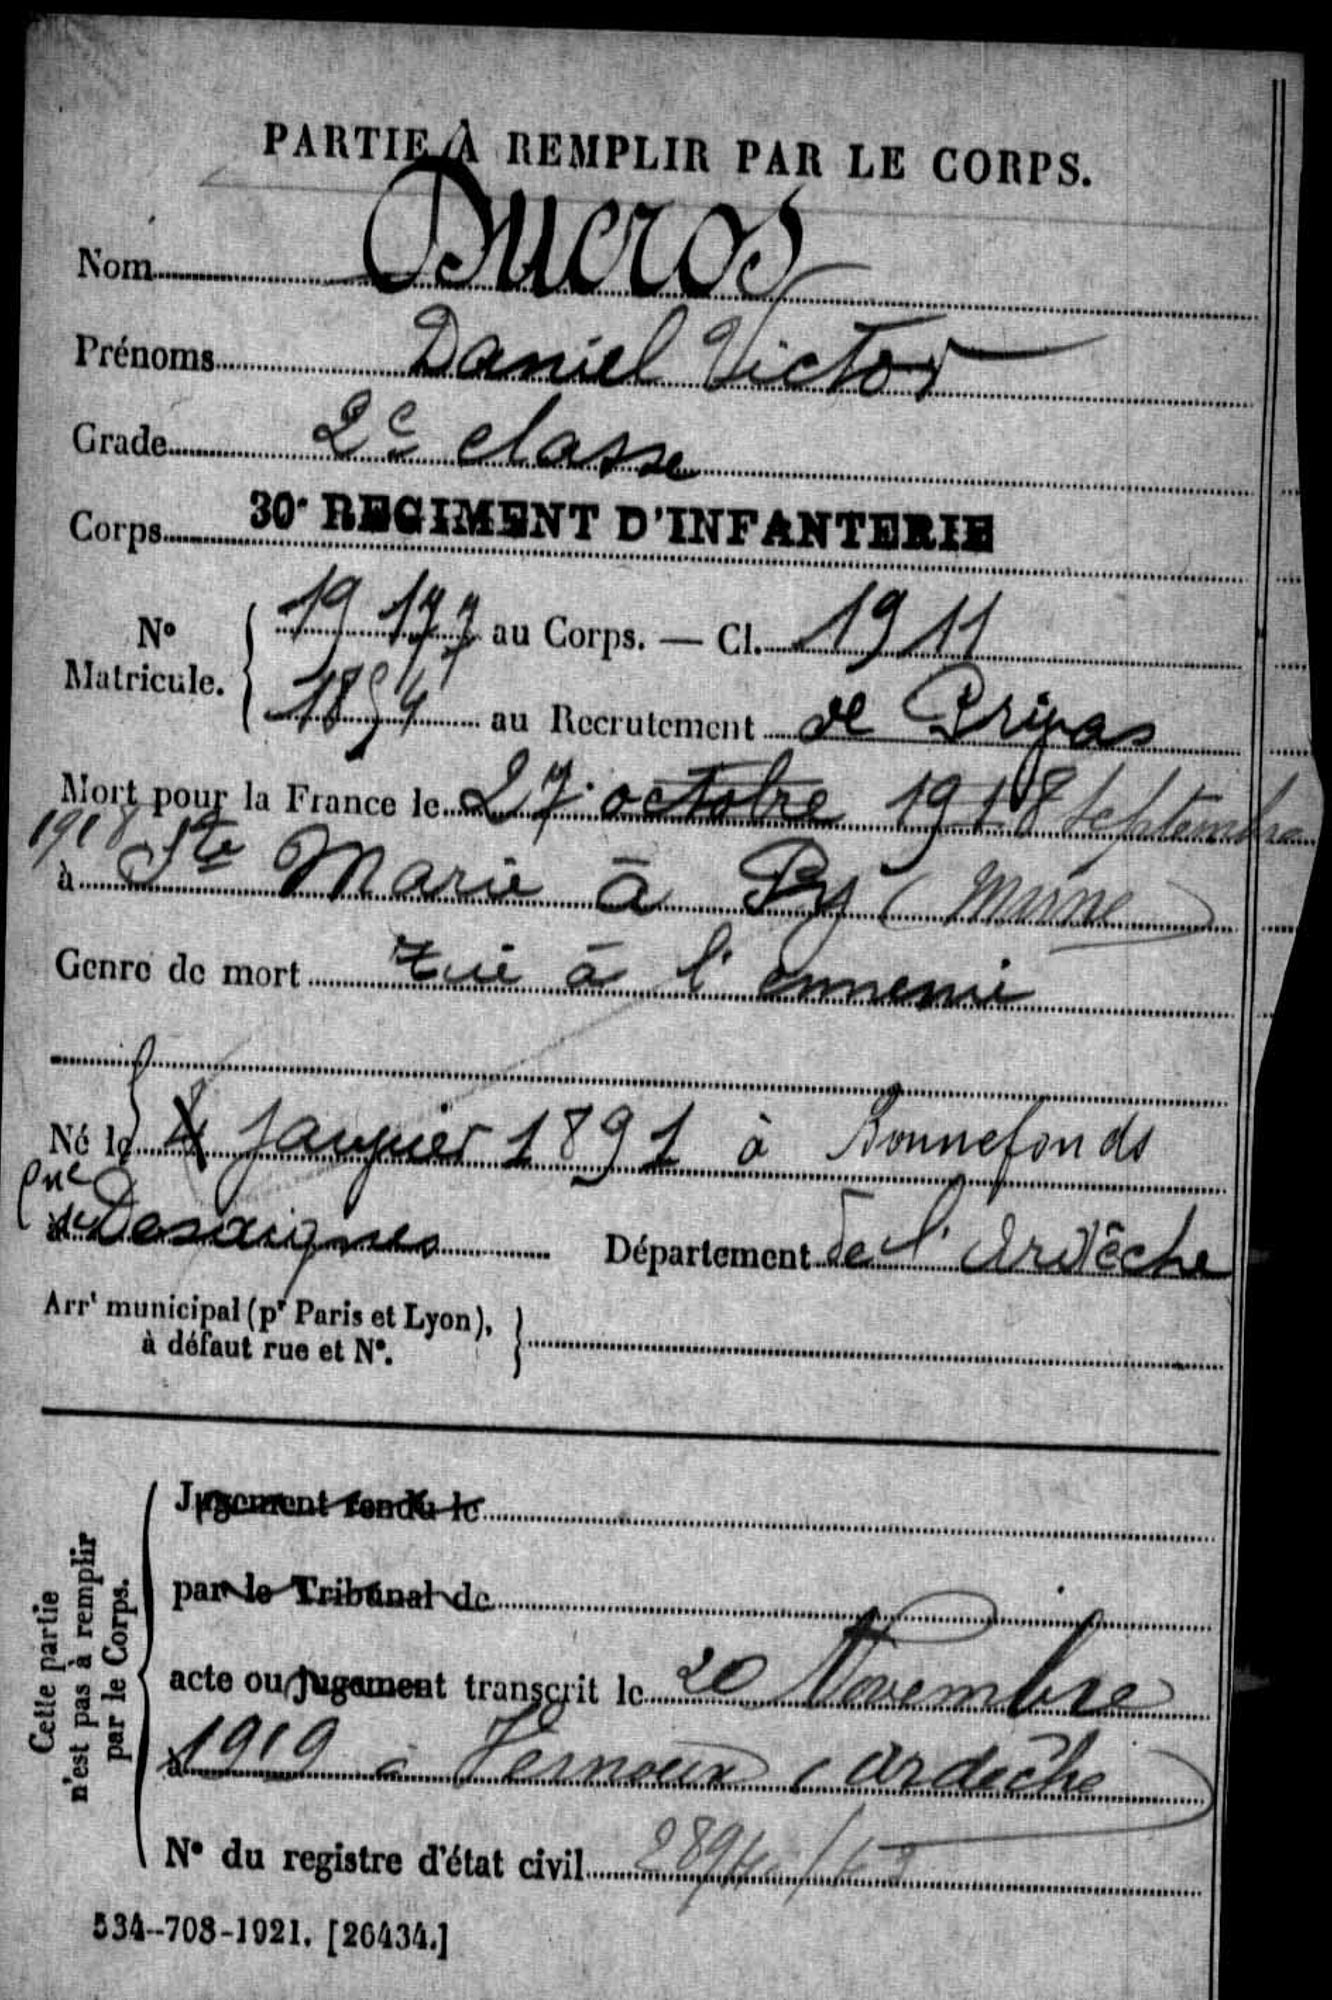 PARTIE À REMPLIR PAR LE CORPS.
Nom Ducros
Prénoms Daniel Victor
Grade 2e classe
Corps 30e REGIMENT D'INFANTERIE
No Matricule. { 19177 au Corps. — Cl. 1911
1854 au Recrutement de Privas
Mort pour la France le 27 octobre 1918 Septembre
1918
à Ste Marie à Py (Marne)
Genre de mort tué à l'ennemi
Né le 4 Janvier 1891 à Bonnefonds
Cne
de Desaignes Département de l'Ardèche
Arrt municipal (pr Paris et Lyon),
à défaut rue et No.
Cette partie
n'est pas à remplir
par le Corps.
Jugement rendu le
par le Tribunal de
acte ou jugement transcrit le 20 Novembre
à 1919 à Vernoux (Ardèche)
No du registre d'état civil
534-708-1921. [26434.]